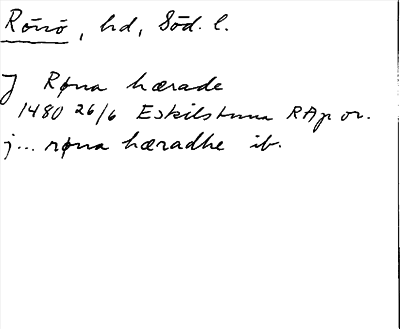 Rönö, hd, Söd. l.
J Røna hærade
1480 26/6 Eskilstuna RAp or.
j... røna hæradhe ib.